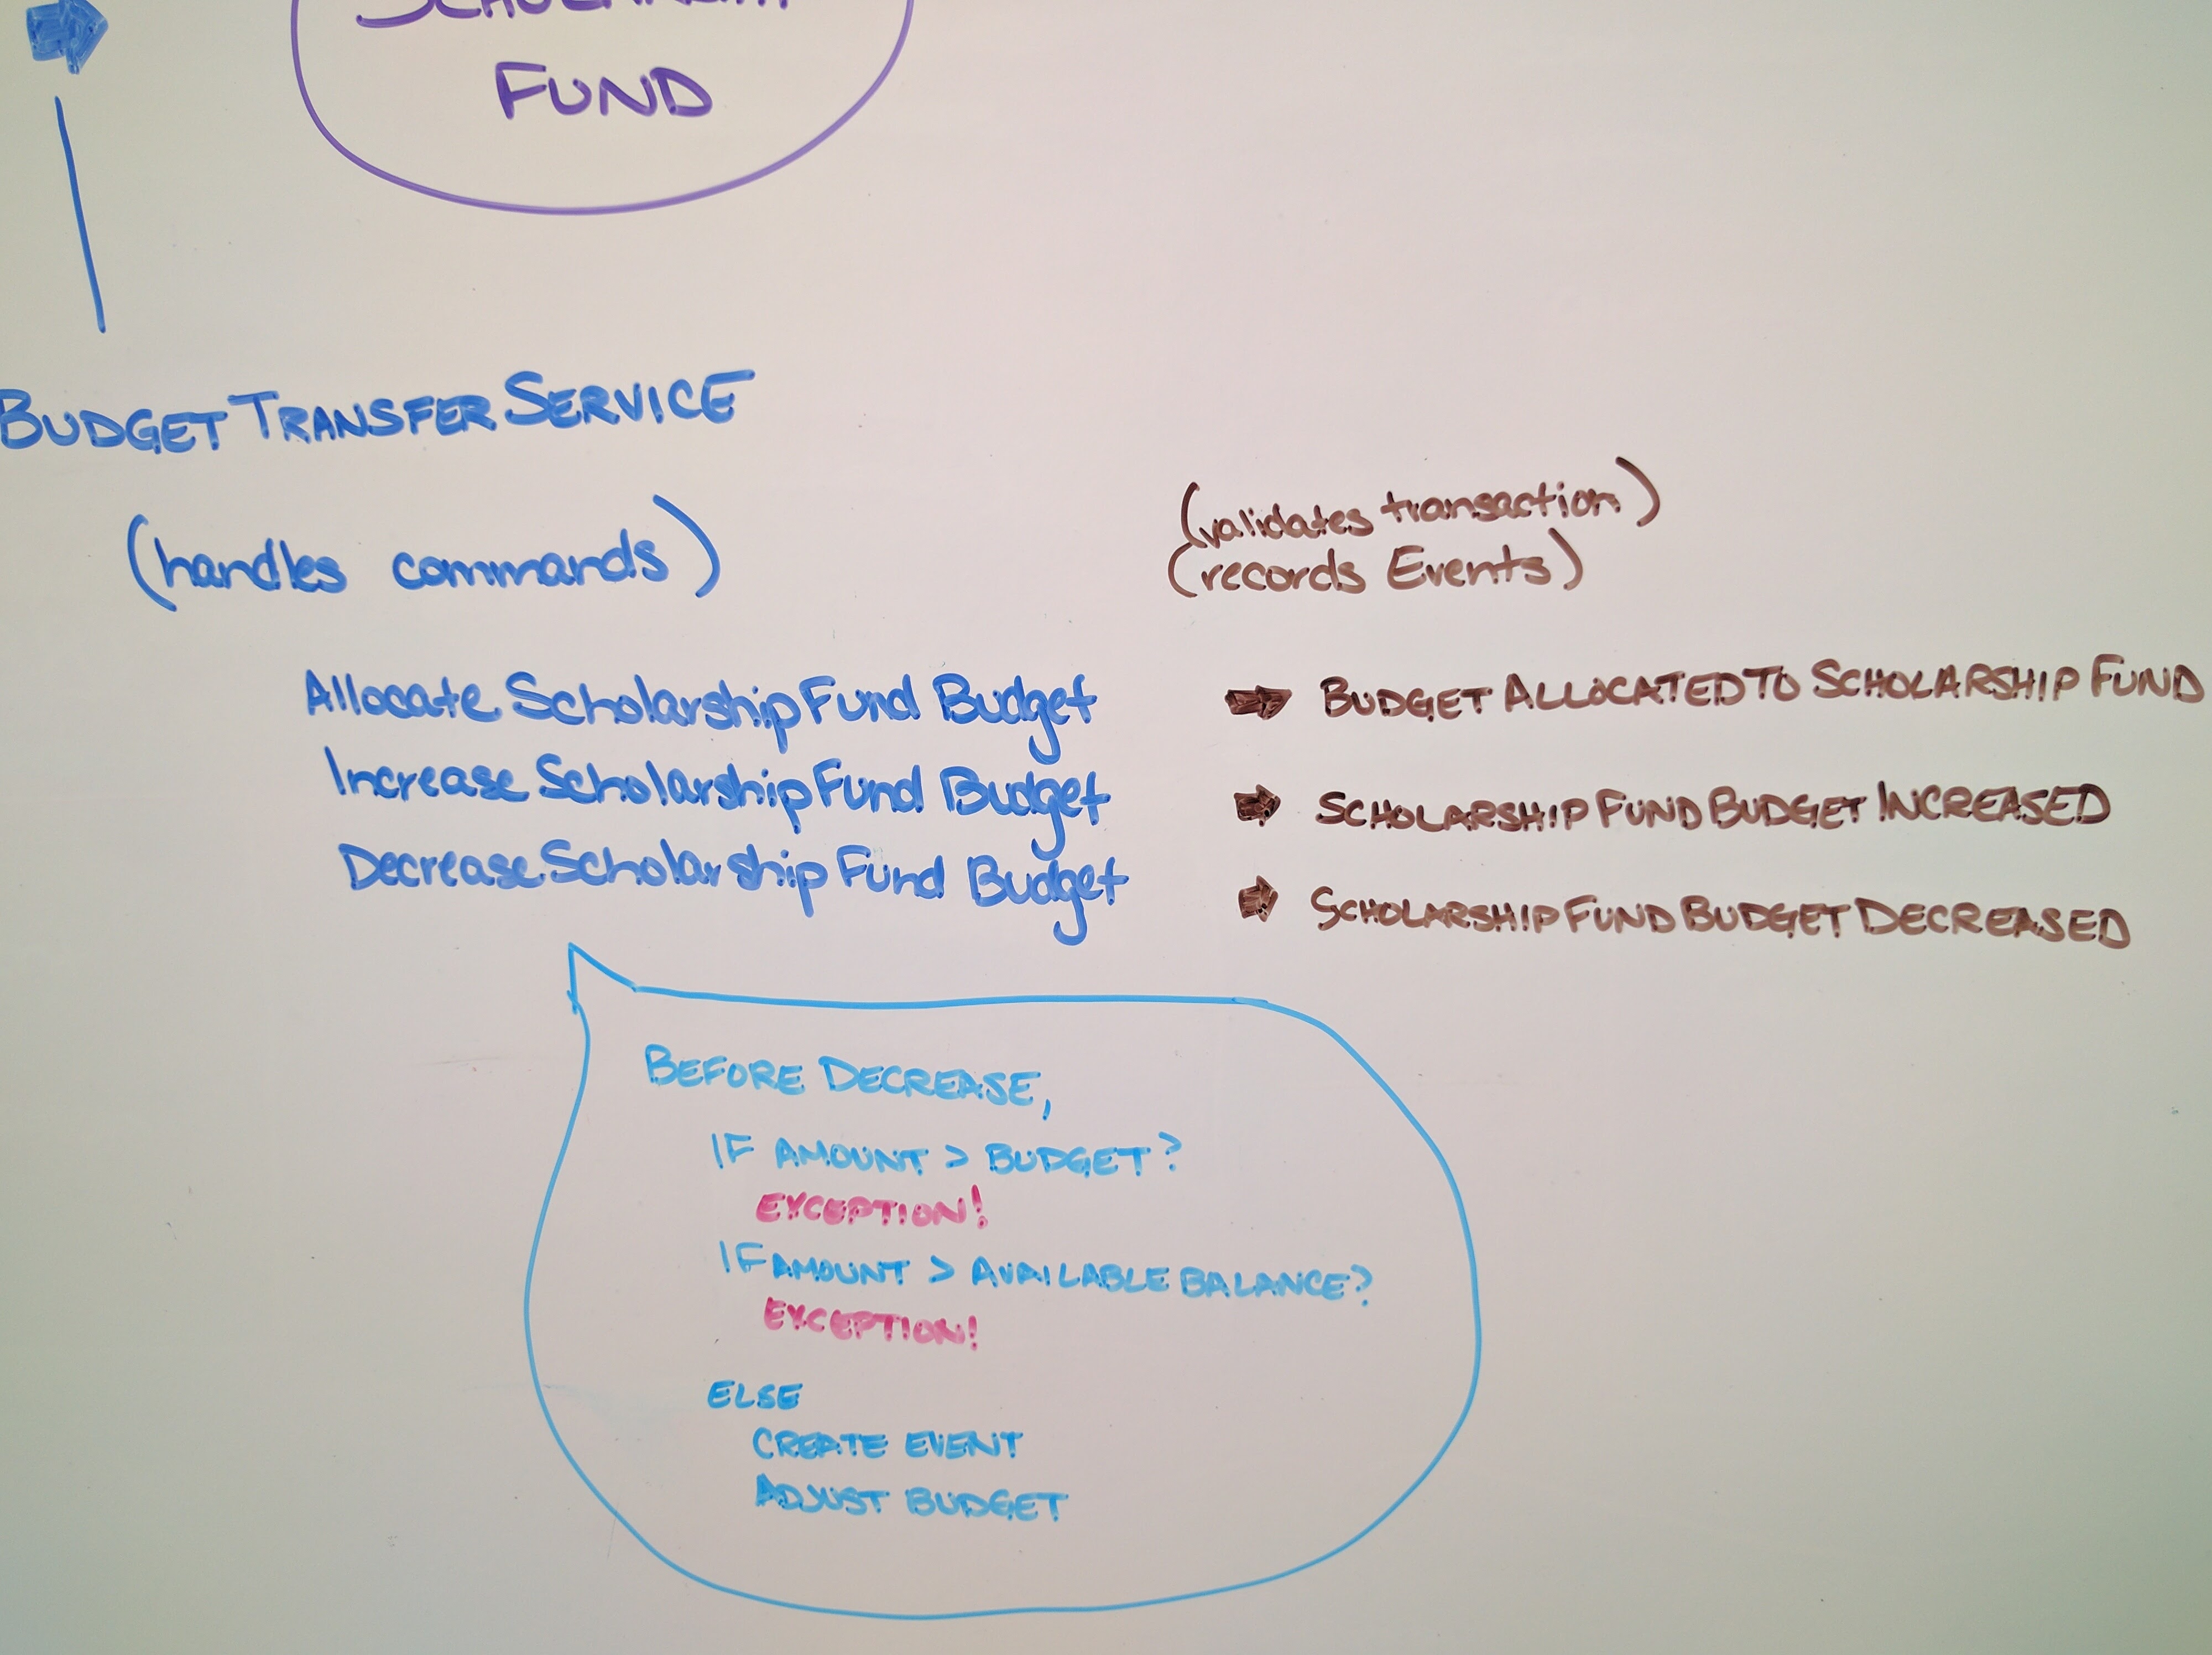 FUND
BUDGET TRANSFER SERVICE
(handles commands)
(validates transaction)
(records Events)
Allocate Scholarship Fund Budget
BUDGET ALLOCATED TO SCHOLARSHIP FUND
Increase Scholarship Fund Budget
SCHOLARSHIP FUND BUDGET INCREASED
Decrease Scholarship Fund Budget
SCHOLARSHIP FUND BUDGET DECREASED
BEFORE DECREASE,
IF AMOUNT > BUDGET?
EXCEPTION!
IF AMOUNT > AVAILABLE BALANCE?
EXCEPTION!
ELSE
CREATE EVENT
ADJUST BUDGET